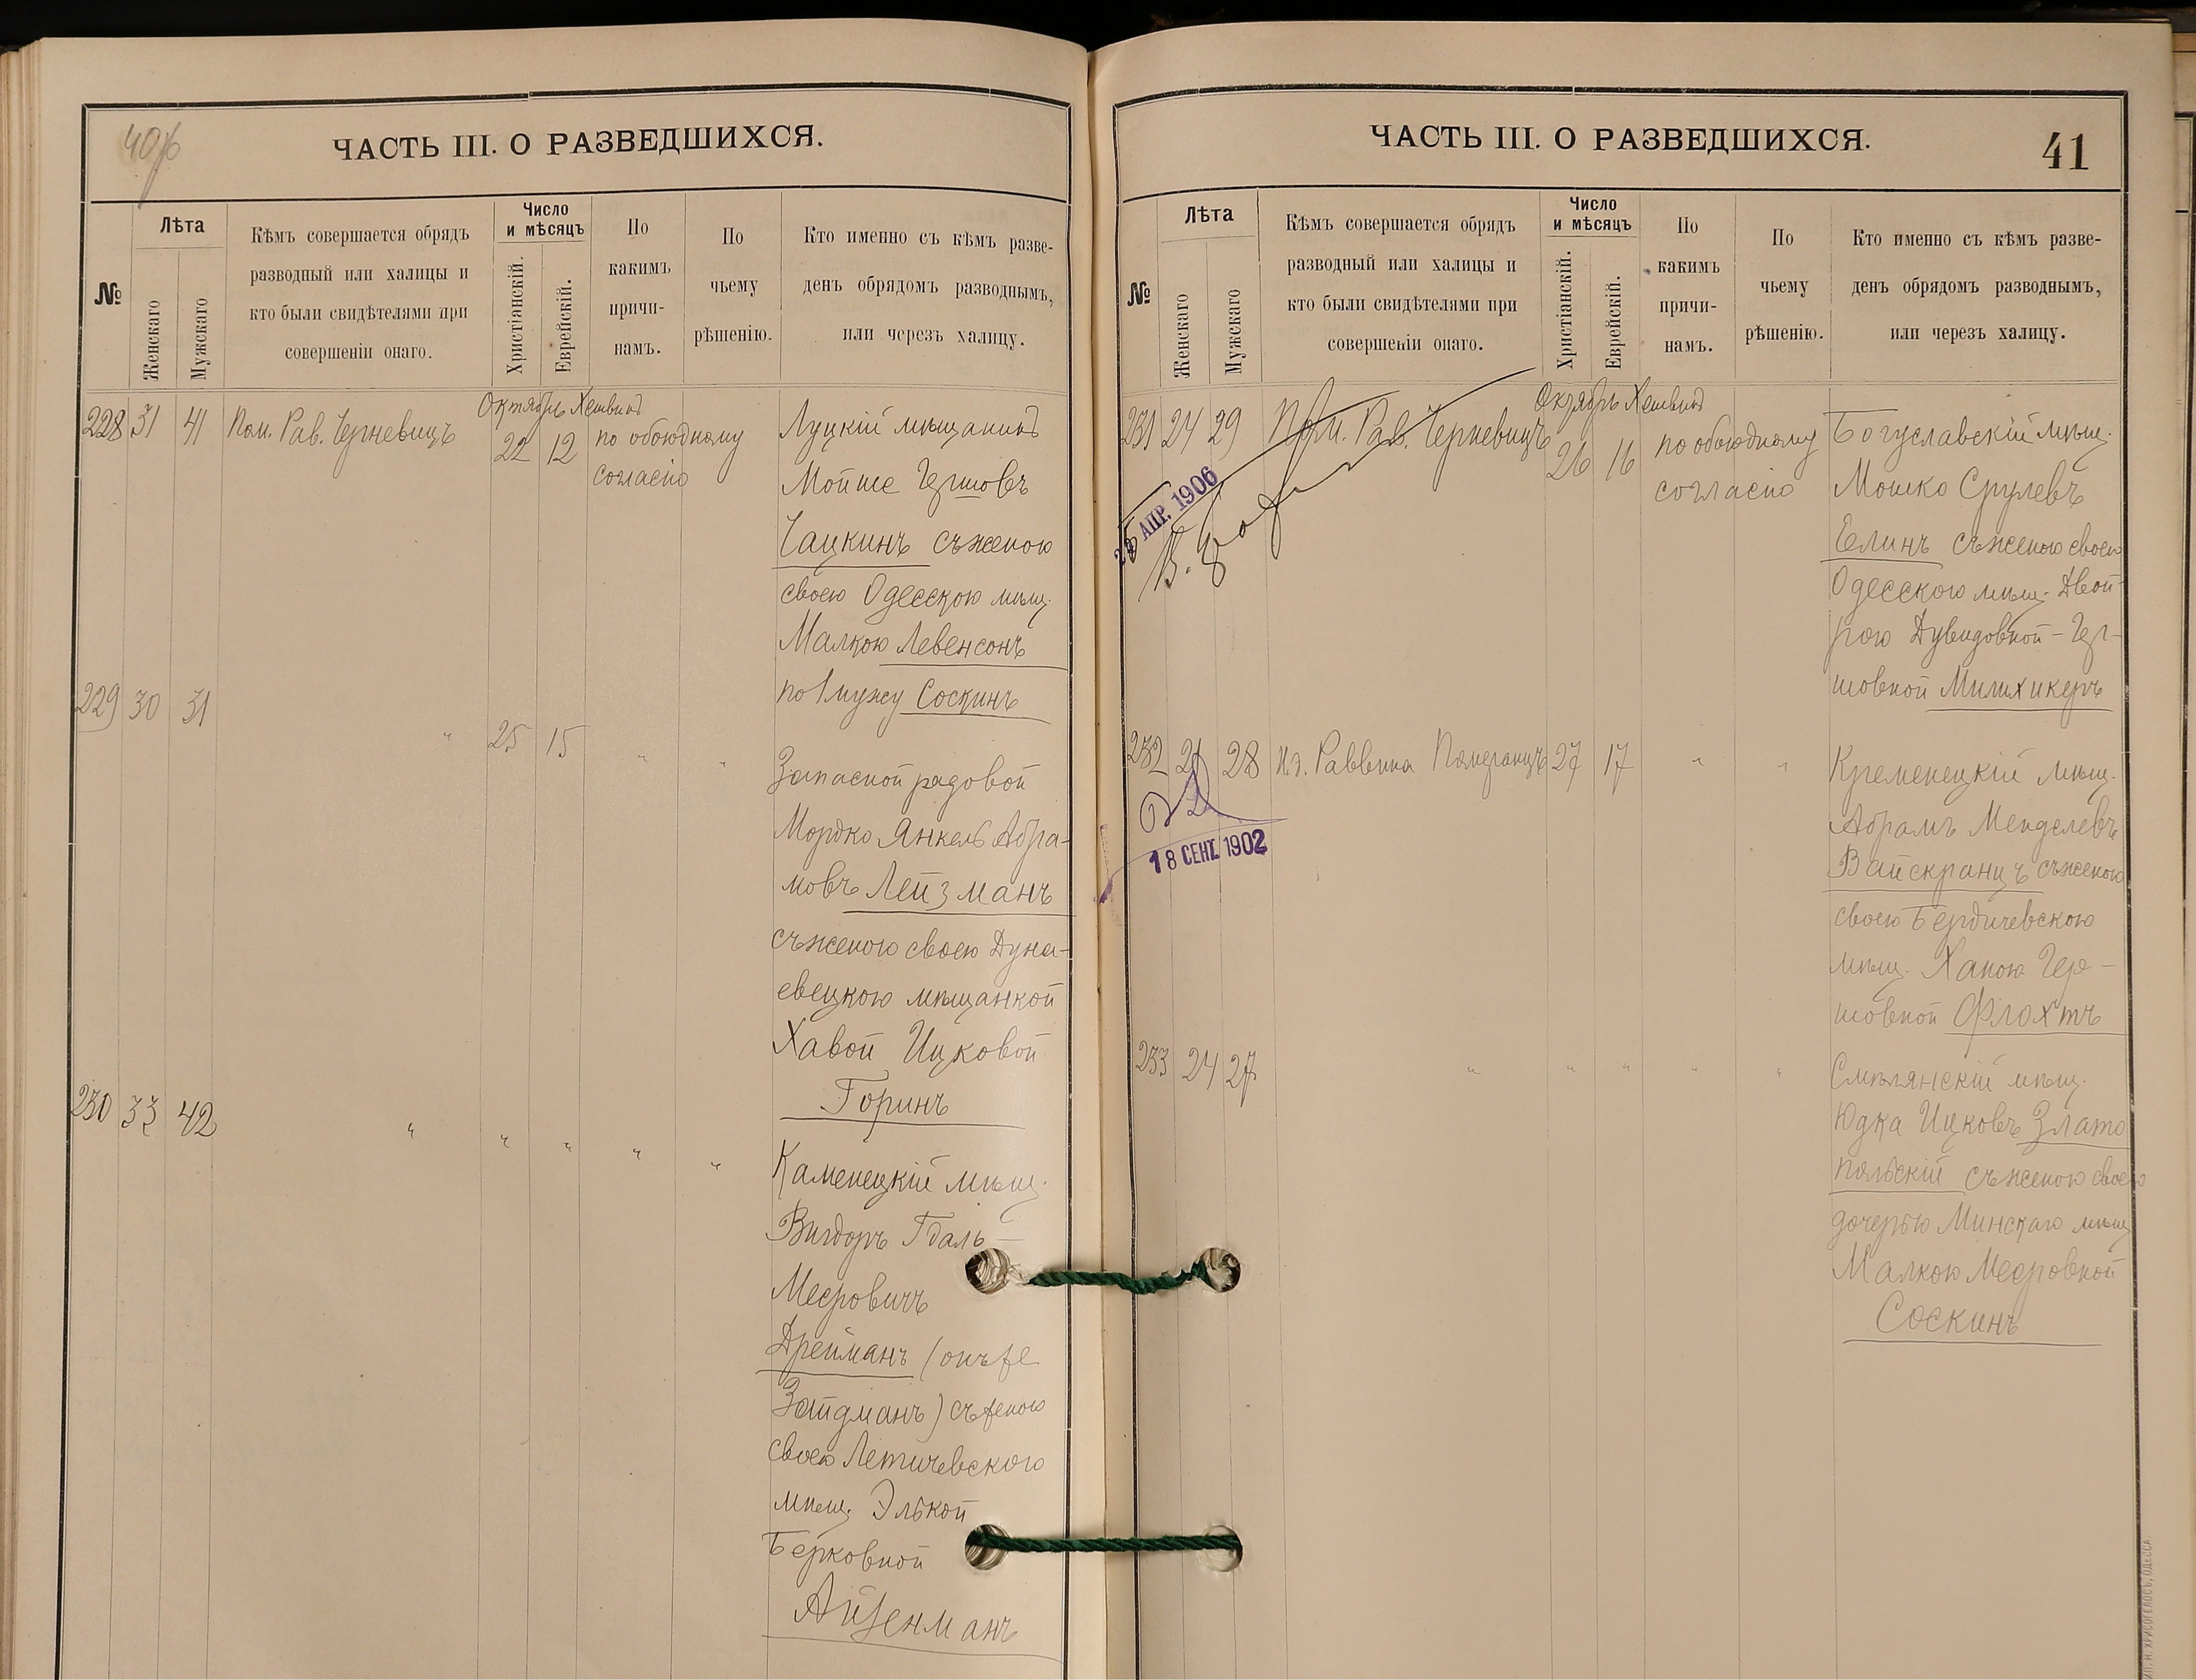 ЧАСТЬ III. О РАЗВЕДШИХСЯ.
№
Лѣта
Женскаго
Мужскаго
Кѣмъ совершается обрядъ
разводный или халицы и
кто были свидѣтелями при
совершеніи онаго.
Число
и мѣсяцъ
Христіанскій.
Еврейскій.
По
какимъ
причи-
намъ.
По
чьему
рѣшенію.
Кто именно съ кѣмъ разве-
денъ обрядомъ разводнымъ,
или черезъ халицу.
Октябрь Хешвид
228 31 41 Пом. Рав. Черневицъ 22 12 по обоюдному
согласію
Луцкій мѣщанинъ
Мойше Гершовъ
Чацкинъ съ женою
своею Одесскою мѣщ.
Малкою Левенсонъ
по 1 мужу Соскинъ
229 30 31 " 25 15 " "
Запасной рядовой
Мордко Янкель Абра-
мовъ Лейзманъ
съ женою своею Дуна-
евецкою мѣщанкой
Хавой Ицковой
Горинъ
230 33 42 " " " " "
Каменецкій мѣщ.
Вигдоръ Гдаль-
Мееровичъ
Дрейманъ (онъ же
Зайдманъ) съ женою
своею Летичевскою
мѣщ. Элькой
Берковной
Айзенманъ
ЧАСТЬ III. О РАЗВЕДШИХСЯ.
41
№
Лѣта
Женскаго
Мужскаго
Кѣмъ совершается обрядъ
разводный или халицы и
кто были свидѣтелями при
совершеніи онаго.
Число
и мѣсяцъ
Христіанскій.
Еврейскій.
По
какимъ
причи-
намъ.
По
чьему
рѣшенію.
Кто именно съ кѣмъ разве-
денъ обрядомъ разводнымъ,
или черезъ халицу.
Октябрь Хешвид
231 24 29 Пом. Рав. Черневицъ 26 16 по обоюдному
согласію
АПР. 1906
Богуславскій мѣщ.
Мошко Срулевъ
Елинъ съ женою своею
Одесскою мѣщ. Двой-
рою Дувидовной-Гер-
шовной Милихикеръ
232 21 28 И.д. Раввина Померанцъ 27 17 " "
18 СЕНТ. 1902
Кременецкій мѣщ.
Абрамъ Менделевъ
Вайскранцъ съ женою
своею Бердичевскою
мѣщ. Ханою Гер-
шовной Флохтъ
233 24 27 " " " " "
Смѣлянскій мѣщ.
Юдка Ицковъ Злато
польскій съ женою своею
дочерью Минскаго мѣщ
Малкою Мееровной
Соскинъ